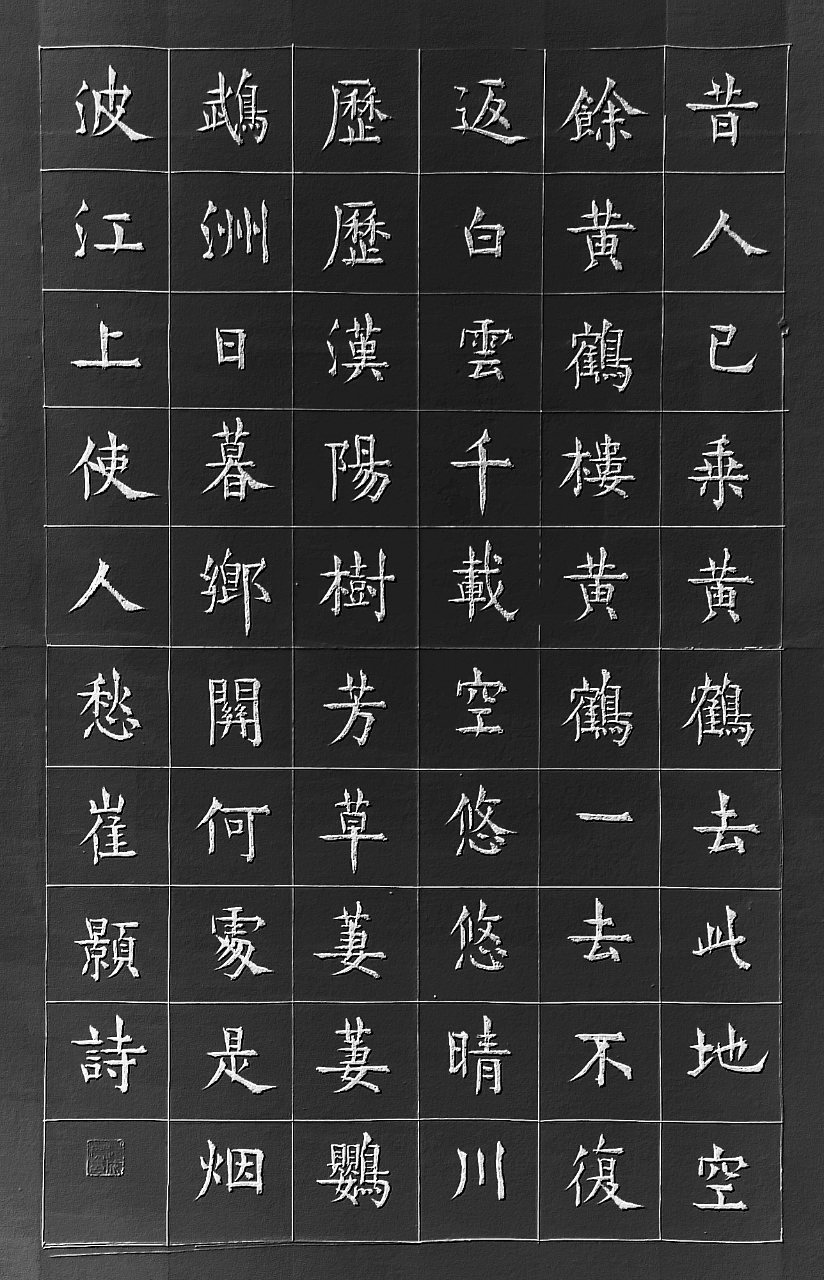 昔人已乗黄鶴去此地空
餘黄鶴樓黄鶴一去不復
返白雲千載空悠悠晴川
歷歷漢陽樹芳草萋萋鸚
鵡洲日暮鄉關何處是烟
波江上使人愁崔顥詩